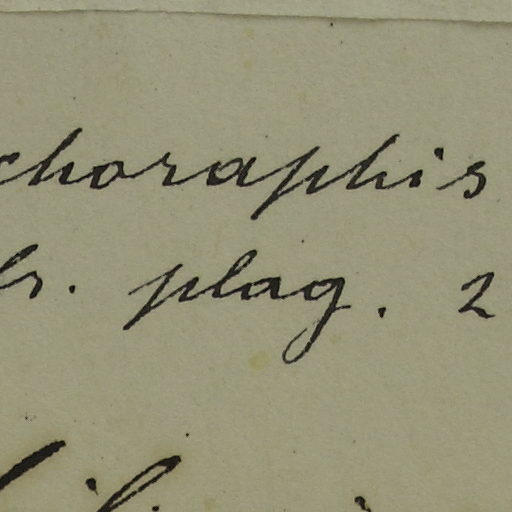 choraphis
br. plag. 2